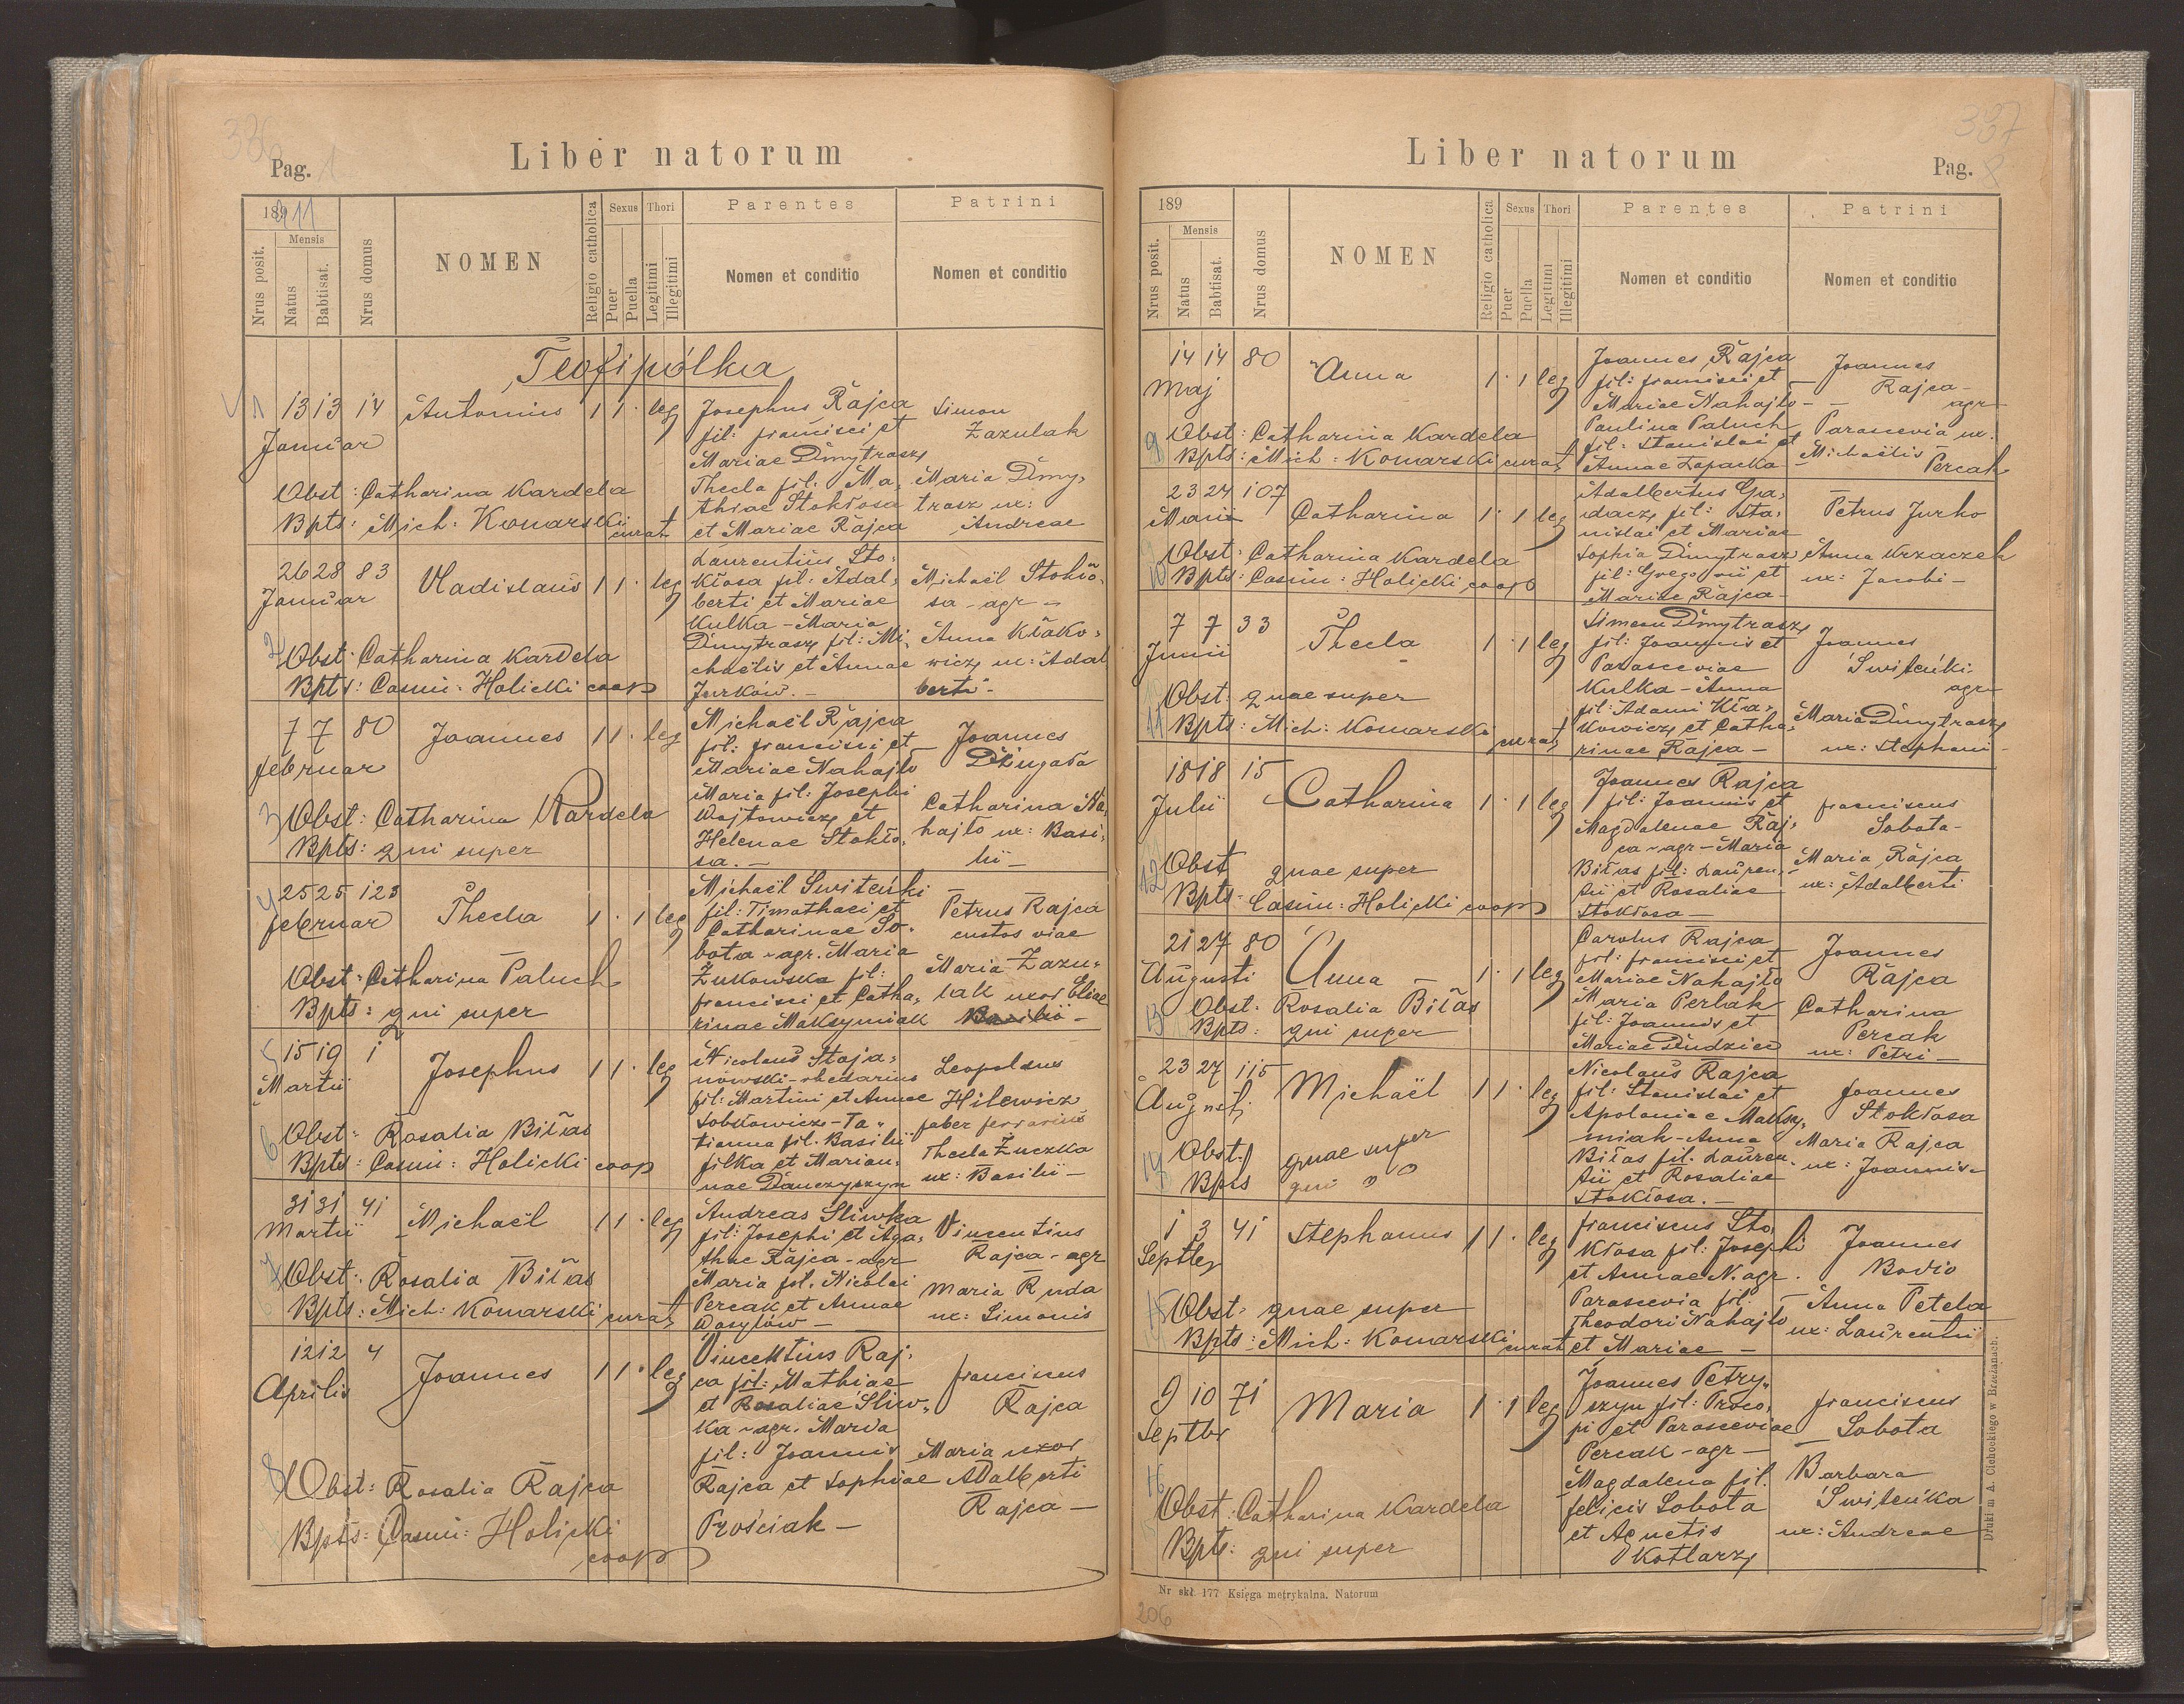 336
Pag. 1
Liber natorum
1911
Nrus posit.
Mensis
Natus
Babtisat.
Nrus domus
NOMEN
Religio catholica
Sexus
Puer
Puella
Thori
Legitimi
Illegitimi
Parentes
Nomen et conditio
Patrini
Nomen et conditio
Teofipólka
1 13 13 14 Antonius 1 1 · leg
Januar
Josephus Rajca
fil: francisci et
Mariae Dmytrasz
Thecla fil: Ma,
thiae Stokłosa
et Mariae Rajca
Simon
Zazulak
Maria Dmy,
trasz ux:
Andreae
Obst: Catharina Kardela
Bpts: Mich: Komarski curat
2 26 28 83 Vladislaus 1 1 · leg
Januar
Laurentius Sto,
kłosa fil: Adal,
berti et Mariae
Kulka - Maria
Dmytrasz fil: Mi,
chaëlis et Annae
Jurków. -
Michaël Stokło,
sa - agr -
Anna Kłako,
wicz ux: Adal
berti -
Obst: Catharina Kardela
Bpts: Casim: Holicki coop
3 7 7 80 Joannes 1 1 · leg
februar
Michaël Rajca
fil: francisci et
Mariae Nahajło
Maria fil: Josephi
Wojtowicz et
Helenae Stokło,
sa. -
Joannes
Dżugała
Catharina Na,
hajło ux: Basi,
lii -
Obst: Catharina Kardela
Bpts: qui super
4 25 25 123 Thecla 1 · 1 leg
februar
Michaël Switeńki
fil: Timothaei et
Catharinae So,
bota - agr. Maria
Żukowska fil:
francisci et Catha,
rinae Maksymiak
Petrus Rajca
custos viae
Maria Zazu,
lak uxor Eliae
Obst: Catharina Paluch
Bpts: qui super
5 15 19 1 Josephus 1 1 · leg
Martii
Nicolaus Staja,
nowski - rhedarius
fil: Martini et Annae
Sobkowicz - Ta,
tianna fil. Basilii
filka et Marian,
nae Danczyszyn
Leopoldus
Hilewicz
faber ferrarius
Thecla Żuczka
ux: Basilii -
6 Obst: Rosalia Biłas
Bpts: Casim: Holicki coop
31 31 41 Michaël 1 1 · leg
Martii
Andreas Sliwka
fil: Josephi et Aga,
thae Rajca - agr
Maria fil. Nicolai
Percak et Annae
Wasylów -
Vincentius
Rajca - agr
Maria Ruda
ux: Simonis
7 Obst: Rosalia Biłas
Bpts: Mich: Komarski curat
12 12 4 Joannes 1 1 · leg
Aprilis
Vincentius Raj,
ca fil: Mathiae
et Rosaliae Sliw,
ka - agr. Maria
fil: Joannis
Rajca et Sophiae
Prościak -
franciscus
Rajca
Maria uxor
Adalberti
Rajca -
8 Obst: Rosalia Rajca
Bpts: Casim: Holicki
coop
337
Liber natorum
Pag.
189
Nrus posit.
Mensis
Natus
Babtisat.
Nrus domus
NOMEN
Religio catholica
Sexus
Puer
Puella
Thori
Legitimi
Illegitimi
Parentes
Nomen et conditio
Patrini
Nomen et conditio
14 14 80 Anna 1 · 1 leg
Maj
Joannes Rajca
fil: francisci et
Mariae Nahajło -
Paulina Paluch
fil: Stanislai et
Annae Łapacka
Joannes
Rajca -
agr
Parascevia ux.
Michaëlis
Percak
9 Obst: Catharina Kardela
Bpts: Mich: Komarski curat
23 24 107 Catharina 1 · 1 leg
Adalbertus Gra,
dacz fil: Sta,
nislai et Mariae
Sophia Dmytrasz
fil: Gregorii et
Mariae Rajca -
Petrus Jurko
Anna Krzaczek
ux: Jacobi -
Obst: Catharina Kardela
10 Bpts: Casim: Holicki coop
7 7 33 Thecla 1 · 1 leg
Junii
Simeon Dmytrasz
fil: Joannis et
Parasceviae
Kulka - Anna
fil: Adami Kła,
kowicz et Catha,
rinae Rajca -
Joannes
Switeńki
agr
Maria Dmytrasz
ux: Stephani -
Obst: quae super
11 Bpts: Mich: Komarski curat
18 18 15 Catharina 1 · 1 leg
Julii
Joannes Rajca
fil: Joannis et
Magdalenae Raj,
ca - agr - Maria
Biłas fil: Lauren,
tii et Rosaliae
Stokłosa -
franciscus
Sobota -
Maria Rajca
ux: Adalberti
12 Obst quae super
Bpts Casim: Holicki coop
21 27 80 Anna - 1 · 1 leg
Augusti
Carolus Rajca
fil: francisci et
Mariae Nahajło
Maria Perhak
fil: Joannis et
Mariae Dudzicz
Joannes
Rajca
Catharina
Percak
ux: Petri -
13 Obst: Rosalia Biłas
Bpts: qui super
23 27 115 Michaël 1 1 · leg
August:
Nicolaus Rajca
fil: Stanislai et
Apoloniae Maksy,
miak - Anna
Biłas fil. Lauren,
tii et Rosaliae
Stokłosa. -
Joannes
Stokłosa
Maria Rajca
ux: Joannis -
14 Obst: quae super
Bpts qui "
1 3 41 Stephanus 1 1 · leg
Septbr
franciscus Sto,
kłosa fil: Josephi
et Annae N. agr.
Parascevia fil.
Theodori Nahajło
et Mariae -
Joannes
Bodio
Anna Petela
ux: Laurentii
15 Obst: quae super
Bpts: Mich: Komarski curat
9 10 71 Maria 1 · 1 leg
Septbr
Joannes Petry,
szyn fil: Proco,
pi et Parasceviae
Percak - agr -
Magdalena fil.
felicis Sobota
et Agnetis
Kotlarz
franciscus
Sobota
Barbara
Switeńka
ux: Andreae
16 Obst: Catharina Kardela
Bpts: qui super
Druki m A. Cichockiego w Brzeżanach.
Nr skł. 177 Księga metrykalna. Natorum
206